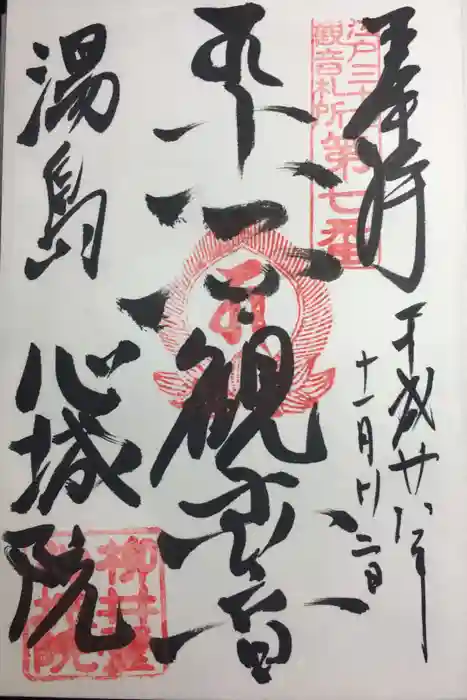 奉拝
江戸三十三
観音札所第七番
平成廿八年
十一月廿二日
十一面観世音
湯島
心城院
柳井堂
心城院